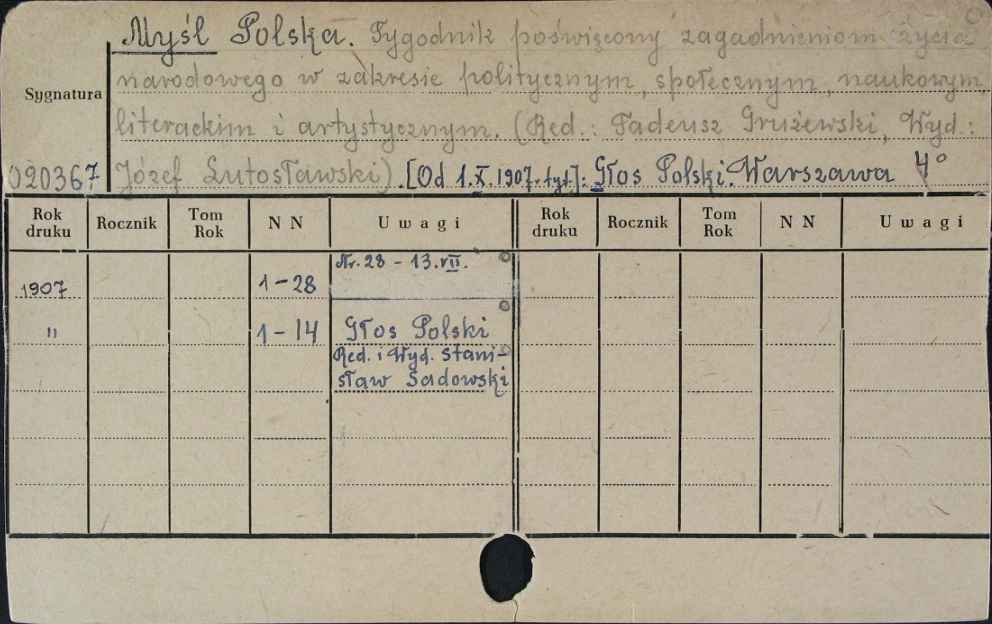 Myśl Polska. Tygodnik poświęcony zagadnieniom życia
narodowego w zakresie politycznym, społecznym, naukowym,
Sygnatura
literackim i artystycznym. (Red.: Tadeusz Grużewski, Wyd.:
020367 Józef Lutosławski). [Od 1.X.1907. tyt]: Głos Polski. Warszawa 4°
Rok druku Rocznik Tom Rok NN Uwagi Rok druku Rocznik Tom Rok NN Uwagi
Nr. 28 - 13.VII.
1907 1-28
" 1-14 Głos Polski
Red. i Wyd. Stani-
sław Sadowski